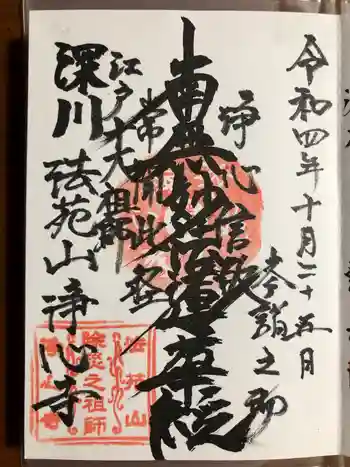 令和四年十月二十五日
奉詣之砌
浄心信敬
南無妙法蓮華経
常聞此経
江戸十大祖師
深川 法苑山 浄心寺
法苑山
除災之祖師
浄心寺